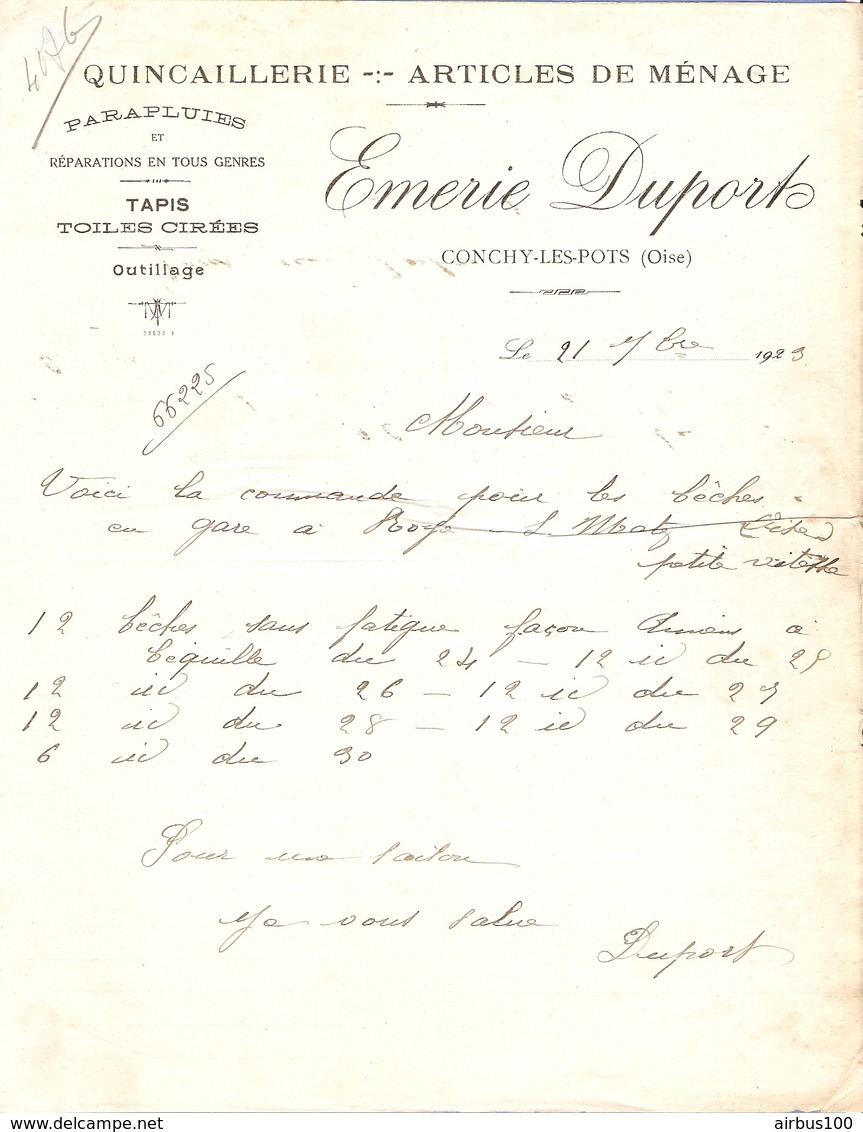 4076
QUINCAILLERIE -:- ARTICLES DE MÉNAGE
PARAPLUIES
ET
RÉPARATIONS EN TOUS GENRES
TAPIS
TOILES CIRÉES
Outillage
Emerie Duport
CONCHY-LES-POTS (Oise)
Le 21 7bre 1923
66225
Monsieur
Voici la commande pour les bêches
en gare à Roye - S. Matz (Oise)
petite vitesse
12 bêches sans fatigue façon Amiens à
béquille du 24 - 12 id du 25
12 id du 26 - 12 id du 27
12 id du 28 - 12 id du 29
6 id du 30
Pour ma saison
Je vous salue
Duport
www.delcampe.net
airbus100